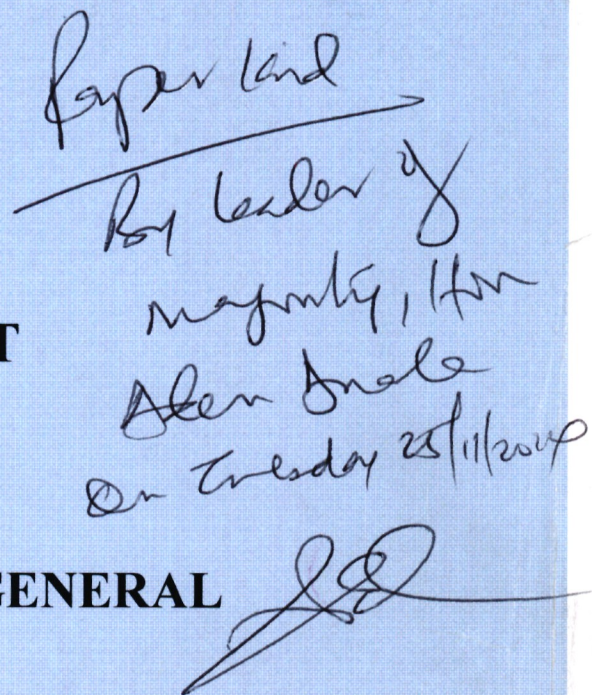 Paper laid
By leader of
majority, Hon
T
on Tuesday 25/11/2020
GENERAL